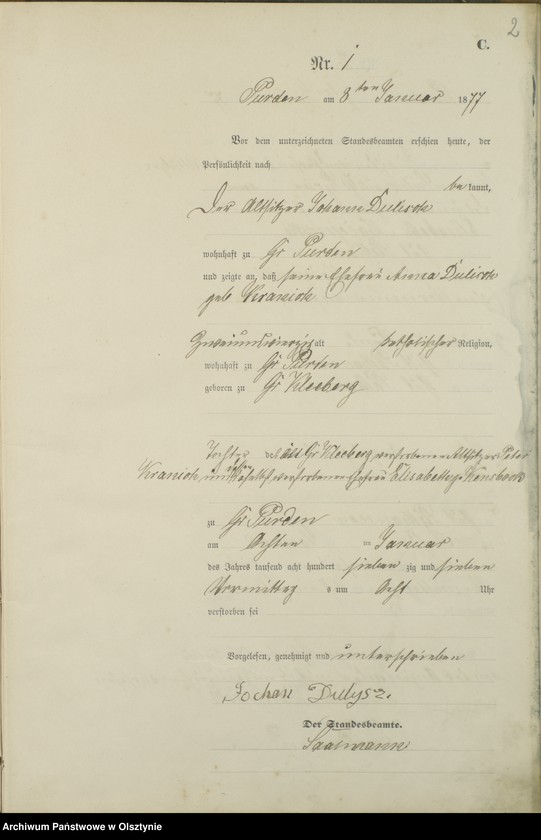 2
C.
Nr. 1
Purden am 8ten Januar 1877
Vor dem unterzeichneten Standesbeamten erschien heute, der
Persönlichkeit nach
be kannt,
Der Altsitzer Johann Dulisch
wohnhaft zu Gr Purden
und zeigte an, daß seine Ehefrau Anna Dulisch
geb Kranich
Zweiundvierzig alt katholischer Religion,
wohnhaft zu Gr Purden
geboren zu Gr Kleeberg
Tochter des in Gr Kleeberg verstorbenen Altsitzer Peter
Kranich und dessen daselbst verstorbenen Ehefrau Elisabeth
zu Gr Purden
am Achten ten Januar
des Jahres tausend acht hundert sieben zig und sieben
Vormittag s um Acht Uhr
verstorben sei
Vorgelesen, genehmigt und unterschrieben
Johan Dulysz.
Der Standesbeamte.
Saalmann
Archiwum Państwowe w Olsztynie